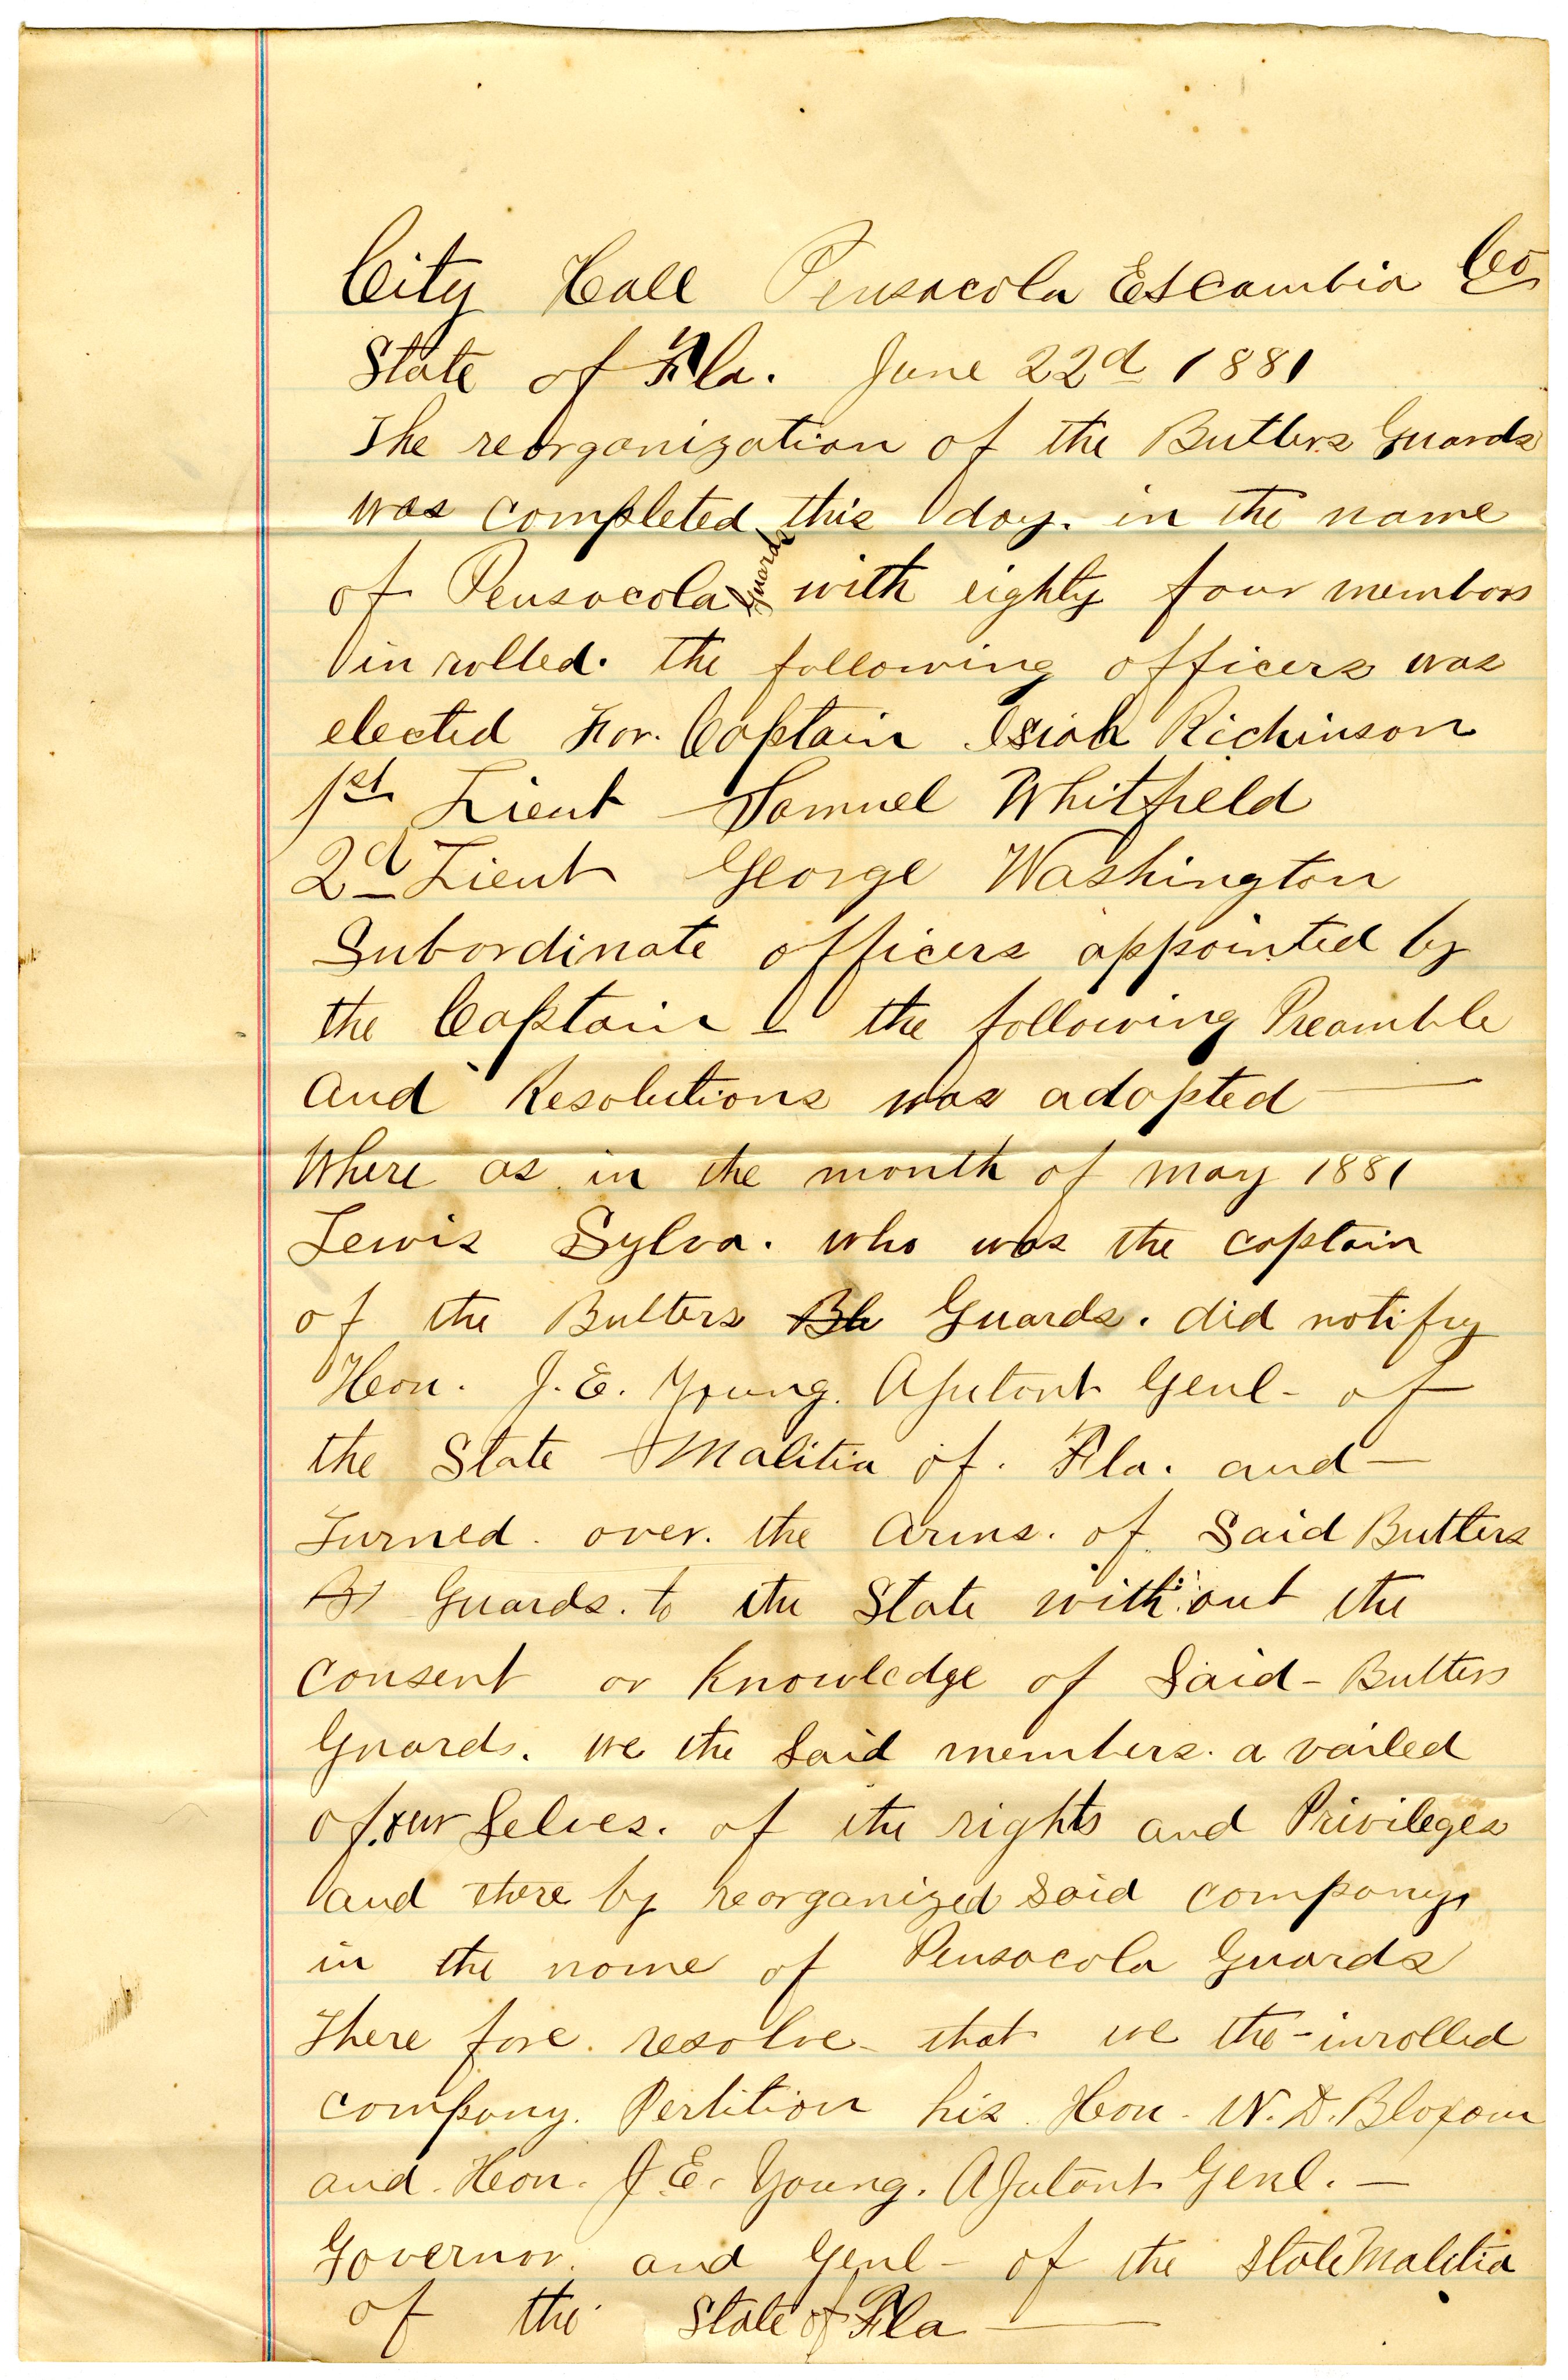 City Hall Pensacola Escambia Co
State of Fla. June 22d 1881
The reorganization of the Butlers Guards
was completed this day. in the name
of Pensacola Guards with eighty four members
in rolled. the following officers was
elected For. Captain Isiah Richinson
1st Lieut Samuel Whitfield
2d Lieut George Washington
Subordinate officers appointed by
the Captain & the following Preamble
and Resolutions was adopted —
Where as in the month of may 1881
Lewis Sylva. who was the captain
of the Butlers Guards. did notify
Hon. J. E. Young. Ajutant Genl - of
the State Malitia of. Fla. and —
Turned. over. the Arms. of Said Butlers
Guards. to the State without the
Consent or Knowledge of Said - Butlers
Guards. we the Said members. a vailed
of. our Selves. of the rights and Privileges
and there by reorganized Said company,
in the name of Pensacola Guards
There fore. resolve - that we the - inrolled
company. Pertition his Hon. W. D. Bloxom
and. Hon. J. E. Young. Ajutant Genl. —
Governor. and Genl - of the State Malitia
of the State of Fla —